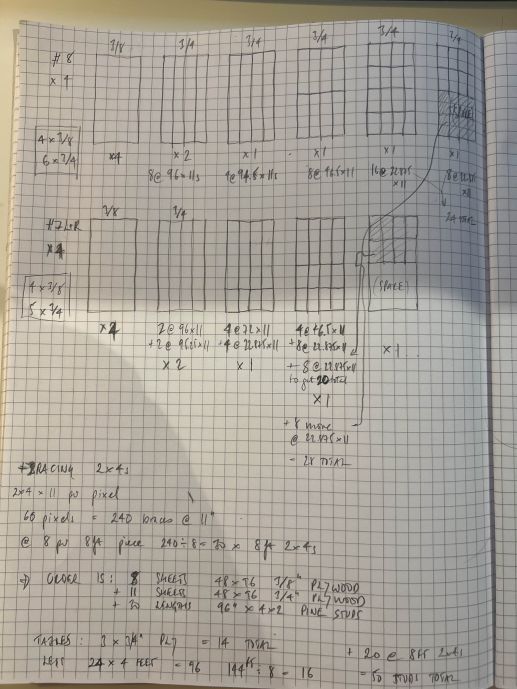 3/8 3/4 3/4 3/4 3/4 3/4
#8
x 4
4 x 3/8
6 x 3/4
x4 x 2 x 1 x 1 x 1 x 1
8 @ 96 x 11s 8 @ 46.5 x 11 16 @ 22.875 x 11 8 @ 22.875 x 11
24 TOTAL
#7 L+R 3/8 3/4
4 x 3/8
5 x 3/4
(SPARE)
2 @ 96 x 11 4 @ 72 x 11 4 @ 46.5 x 11
+ 4 @ 22.875 x 11 + 8 @ 22.875 x 11
x 2 x 1 + 8 @ 22.875 x 11 x 1
to get 20 total
x 1
+ 8 more
@ 22.875 x 11
= 28 TOTAL
BRACING 2x4s
2x4 x 11 per pixel
60 pixels = 240 braces @ 11"
@ 8 per 8ft piece 240 ÷ 8 = 30 x 8ft 2x4s
⇒ ORDER IS: 8 SHEETS 48 x 96 3/8" PLYWOOD
+ 11 SHEETS 48 x 96 3/4" PLYWOOD
+ 30 LENGTHS 96" x 4 x 2 PINE STUDS
TABLES: 3 x 3/4" PLY = 14 TOTAL
+ 20 @ 8FT 2x4s
LEGS 24 x 4 FEET = 96 144 ÷ 8 = 16
= 50 STUDS TOTAL